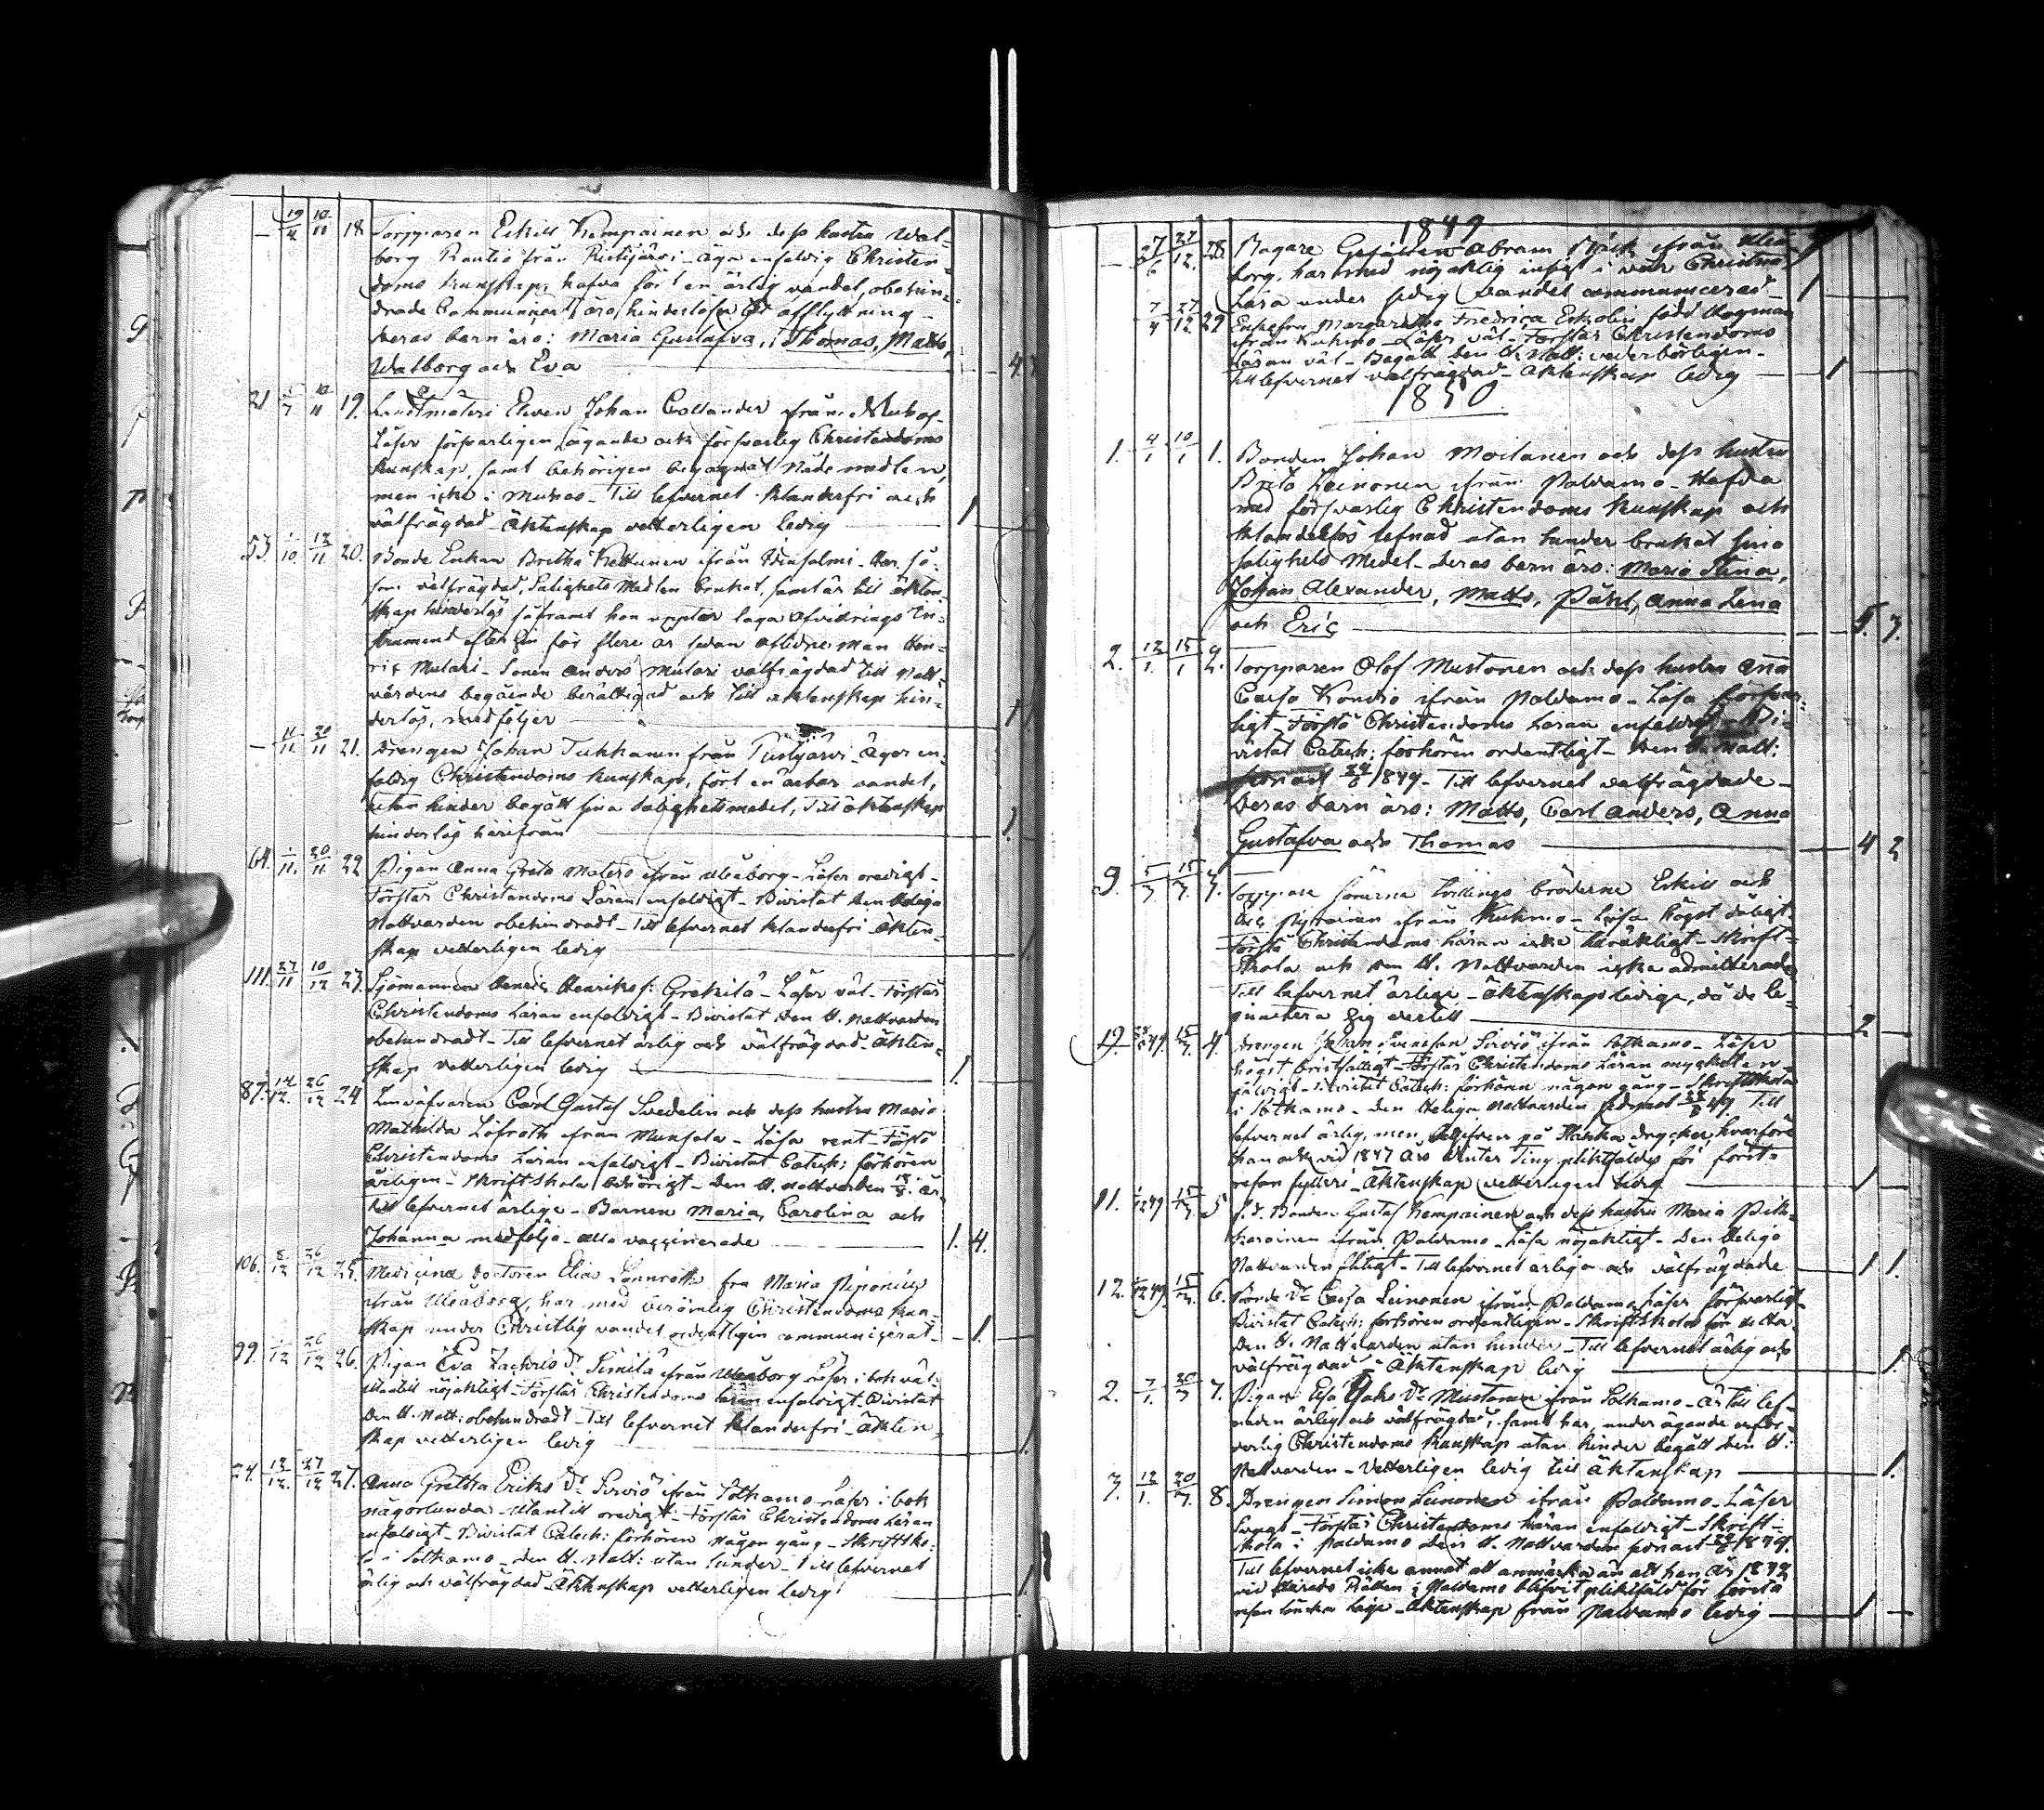 19/4 10/11 18 Torpparen Eskill Kempainen och dess hustru Wal-
borg Rautio från Ristijärvi - äga enfaldig Christen-
doms kunskap, hafva fört en ärlig vandel, obehin-
drade Communicer äro hinderlösa till afflyttning -
deras barn äro: Maria Gustafva, Thomas, Matts,
Walborg och Eva
21 10/11 19. Landtmäteri Eleven Johan Collander ifrån Muhos -
Läser försvarligen, ägande ock försvarlig Christendoms
kunskap, samt behörigen begagnat nådemedlen,
men icke i Muhos - Till lefvernet klanderfri och
välfrägdad - Äktenskap vetterligen ledig 1
53 1/10 12/11 20. Bonde Enkan Bretha Kettunen ifrån Idensalmi - Har så-
som välfrägdad, Salighets Medlen brukat, samt är till äkten-
skap hinderlös såframt hon uppter laga Afvidrings In-
strument efter sin för flere år sedan aflidne man Hen-
ric Mulari - Sonen Anders Mulari välfrägdad till Natt-
vardens begående berättigad och till äktenskap hin-
derlös, medföljer 1 1
- 11/11 20/11 21. Drengen Johan Tukkanen från Ristijärvi - Äger en-
faldig Christendoms kunskap, fört en ärbar vandel,
utan hinder begått sina Salighetsmedel, Till äktenskap
hinderlös härifrån 1.
64. 1/11. 20/11 22 Pigan Anna Greta Matero ifrån Uleåborg - Läser oredigt -
Förstår Christendoms Läran enfaldigt - Bivistat den heliga
Nattvarden obehindradt - Till lefvernet klanderfri - Äkten-
skap vetterligen ledig 1
111. 27/11 10/12 23. Sjömannen Henric Henriksf: Grekilä - Läser väl - Förstår
Christendoms Läran enfaldigt - Bivistat den H. Nattvarden
obehindradt - Till lefvernet ärlig och välfrägdad - Äkten-
skap vetterligen ledig 1.
87. 14/12. 26/12 24 Linväfvaren Carl Gustaf Svedelin och dess hustru Maria
Mathilda Löfroth ifrån Munsala - Läsa rent - Förstå
Christendoms Läran enfaldigt - Bivistat Catech: förhören
årligen - Skriftskola behörigt - Den H. Nattvarden
till lefvernet ärlige - Barnen Maria, Carolina och
Johanna medfölja - alla vaccinerade 1. 4.
106. 8/12 26/12 25. Medicinæ Doctoren Elias Lönnroths fru Maria Piponius
ifrån Uleåborg, har med berömlig Christendoms kun-
skap under Christlig vandel ordentligen communicerat - 1.
99. 1/12 26/12 26. Pigan Eva Zachris Dr Similä ifrån Uleåborg Läser i bok väl -
Utantill nöjaktigt - Förstår Christendoms läran enfaldigt - Bivistat
den H. Natt: obehindradt - Till lefvernet klanderfri - Äkten-
skap vetterligen ledig 1.
24. 13/12. 27/12 27. Anna Gretha Eriks Dr Sirviö ifrån Sotkamo - Läser i bok
någorlunda - Utantill oredigt - Förstår Christendoms Läran
enfaldigt - Bivistat Catech: förhören någon gång - Skriftsko-
la i Sotkamo - Den H. Natt: utan hinder - Till lefvernet
ärlig och välfrägdad - Äktenskap vetterligen ledig 1.
1849
- 27/6 27/12. 28. Bagare Gesällen Abram Bäck ifrån Uleå-
borg, har med nöjaktig insigt i vår Christna
Lära under sedig vandel communicerad - 1
7/4 27/12 29 Enkefru Margaretha Fredrica Eskolin född Hogman
ifrån Kuhmo - Läser väl - Förstår Christendoms
Läran väl - Begått den H. Natt: vederbörligen -
till lefvernet välfrägdad - Äktenskap ledig - 1
1850.
1. 4/1 10/1 1. Bonden Johan Moilanen och dess hustru
Brita Leinonen ifrån Paldamo - Hafva
med försvarlig Christendoms kunskap och
klanderlös lefnad utan hinder brukat sina
salighets Medel - deras barn äro: Maria Stina,
Johan Alexander, Matts, Påhl, Anna Lena
och Eric 5. 3.
2. 12/1. 15/1 2. Torpparen Olof Mustonen och dess hustru Anna
Caisa Kondio ifrån Paldamo - Läsa försvar-
ligt - Förstå Christendoms Läran enfaldigt - Bi-
vistat Catech: förhören ordentligt - Den H. Natt:
1849 - Till lefvernet välfrägdade -
Deras barn äro: Matts, Carl Anders, Anna
Gustafva och Thomas 4 2
9. 5/3 15/3. 3. Torppare Sönerna Tvillings bröderne Eskill och
ifrån Kuhmo - Läsa högst dåligt
Förstå Christendoms Läran icke - Skrift-
skola och den H. Nattvarden icke admitterade
Till lefvernet ärlige - Äktenskap ledige, då de le-
gitimera sig dertill 2
19. 15/3. 4. Drengen Johan Svensson Sirviö ifrån Sotkamo - Läser
högst bristfälligt - Förstår Christendoms Läran mycket en-
faldigt - Bivistat Catech: förhören någon gång - Skriftskola
i Sotkamo - Den Heliga Nattvarden sednast 49. Till
lefvernet ärlig, men begifven på starka drycker, hvarföre
han ock vid 1847 års Vinter Ting pliktfäldes för första
resan fylleri - Äktenskap vetterligen ledig 1
11. 15/3. 5 f.d. Bonden Gustaf Kempainen och dess hustru Maria Pik-
karainen ifrån Paldamo - Läsa nöjaktigt - Den heliga
Nattvarden flitigt - Till lefvernet ärliga och välfrägdade 1 1.
12. 15/3. 6. Bonde Dr Caisa Leinonen ifrån Paldamo, Läser försvarligt
Bivistat Catech: förhören ordentligen - Skriftskola
Den H. Nattvarden utan hinder - Till lefvernet ärlig och
välfrägdad - Äktenskap ledig 1.
2. 7/1. 20/3 7. Pigan Caisa Jaks Dr Mustonen ifrån Sotkamo - Är till lef-
naden ärlig och välfrägdad, samt har, under ägande
Christendoms kunskap utan hinder begått den H:
Nattvarden - Vetterligen ledig till äktenskap 1.
3. 12/1. 20/3. 8. Drengen Simon Leinonen ifrån Paldamo - Läser
svagt - Förstår Christendoms Läran enfaldigt - Skrift-
skola i Paldamo den H. Nattvarden 1849.
Till lefvernet icke annat att anmärka än att han År 1849
vid Härads Rätten i Paldamo blifvit pliktfäld för första
resan lönska läge - Äktenskap från Paldamo ledig 1 -